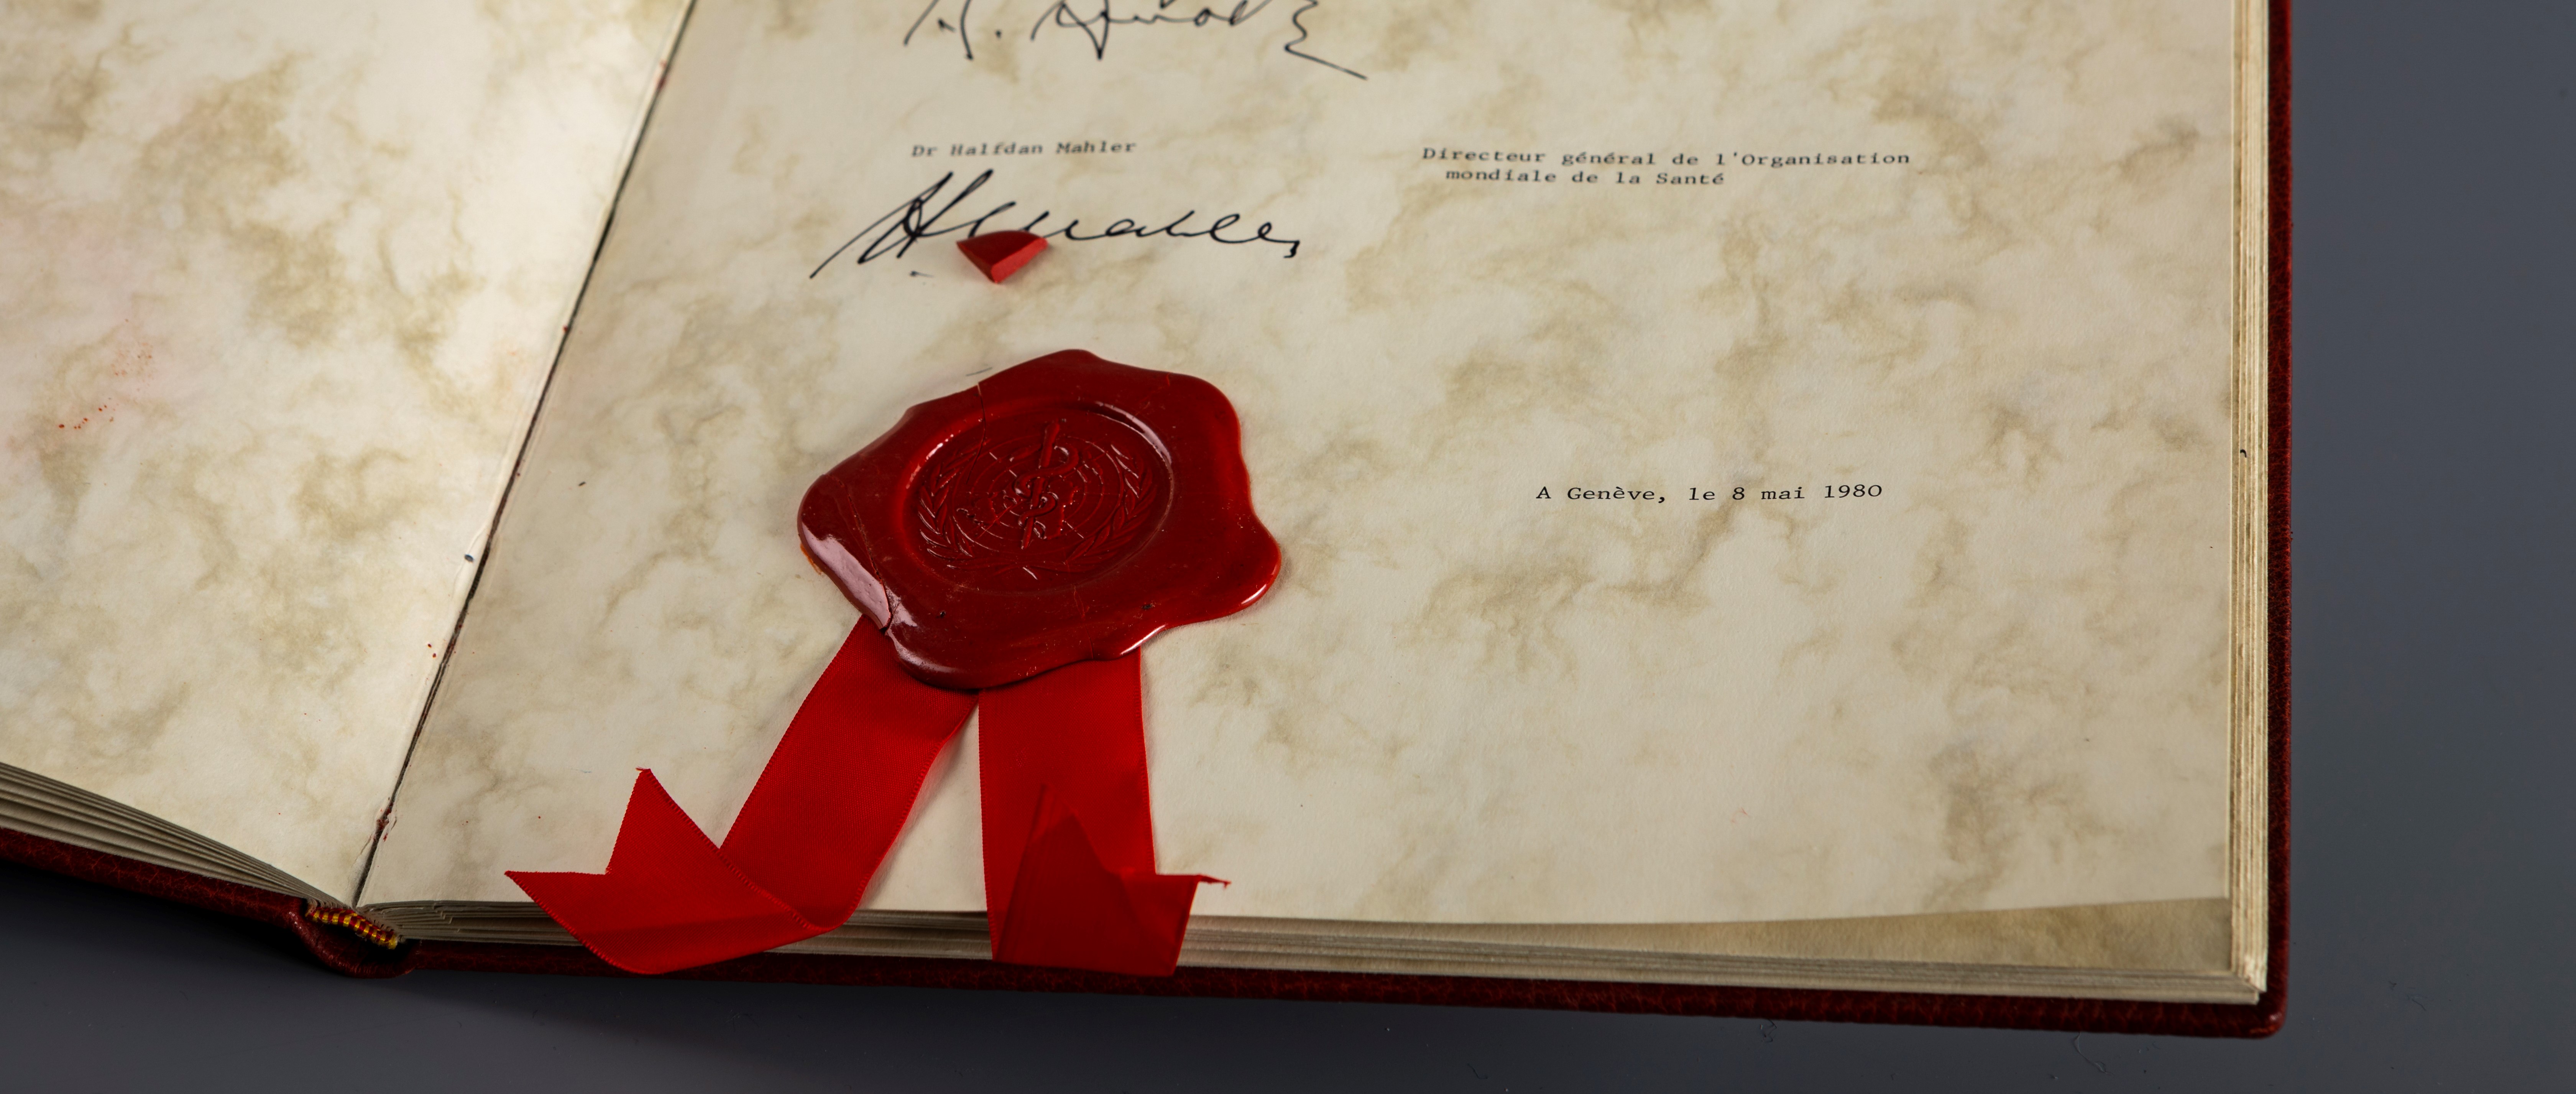 Dr Halfdan Mahler
Directeur général de l'Organisation
mondiale de la Santé
A Genève, le 8 mai 1980